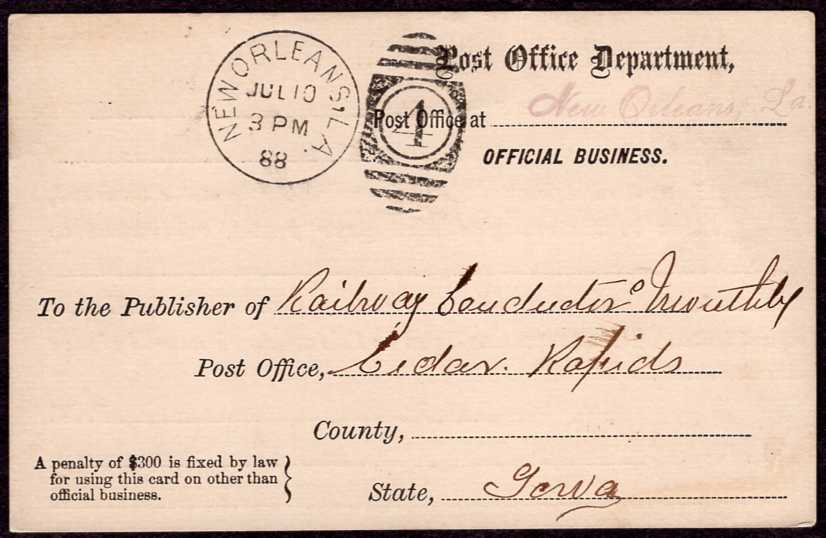 NEW ORLEANS, LA.
JUL 10
3 PM
88
4
Post Office Department,
Post Office at New Orleans, La
OFFICIAL BUSINESS.
To the Publisher of Railway Conductors Monthly
Post Office, Cedar Rapids
County,
A penalty of $300 is fixed by law
for using this card on other than
official business.
State, Iowa